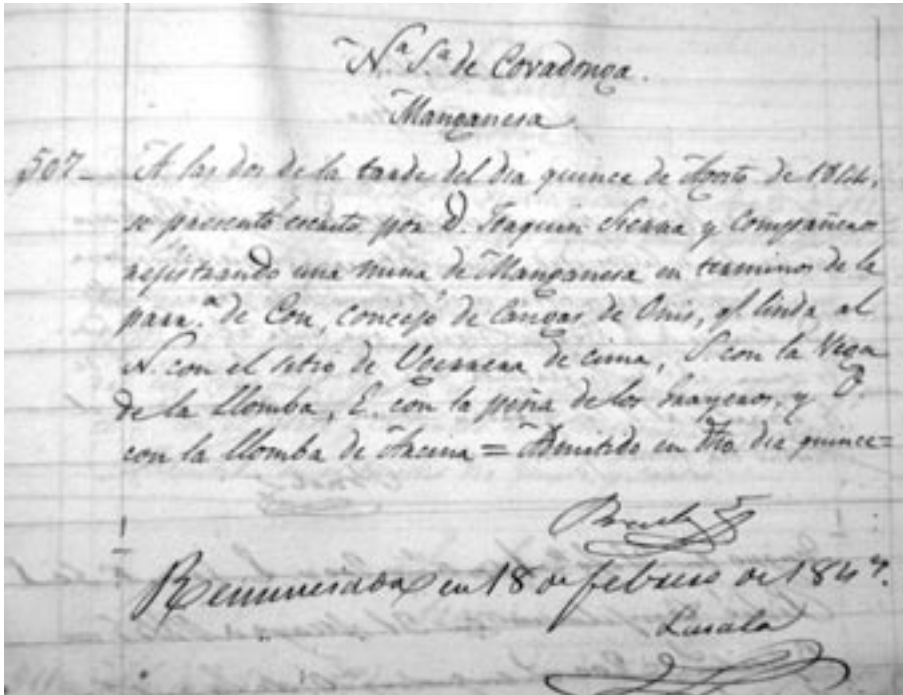 N.ª S.ª de Covadonga.
Manganesa
507 - A las dos de la tarde del dia quince de Agosto de 1844,
se presentó escrito por D. Joaquin Sierra y Compañeros
rejistrando una mina de Manganesa en terminos de la
parr.ª de Con, concejo de Cangas de Onis, q.e linda al
N. con el sitio de de cima, S. con la Vega
de la Llomba, E. con la peña de los y O.
con la Llomba de = Admitido en dho. dia quince=
en 18 de febrero de 1847.